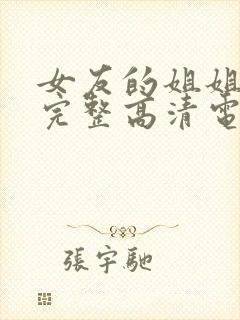 女友的姐姐
完整高清電
張宇馳